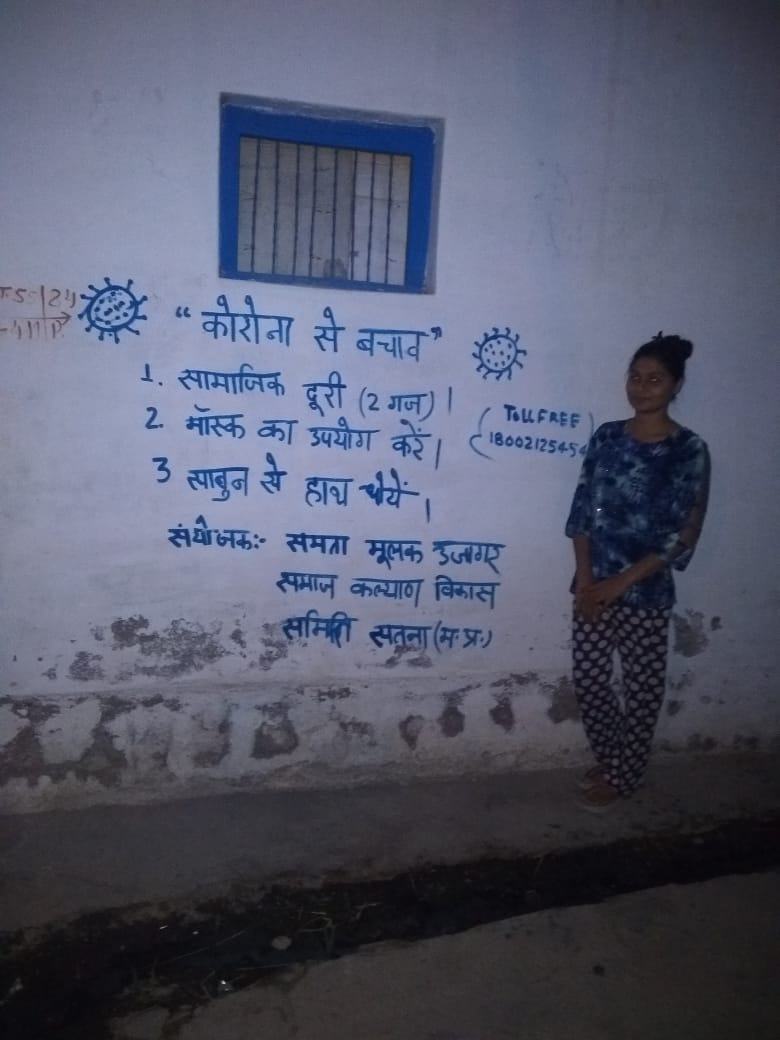 "कोरोना से बचाव"
1. सामाजिक दूरी (2 गज)।
2. मॉस्क का उपयोग करें।
3 साबुन से हाथ धोयें।
(TOLL FREE
18002125454)
संयोजक:- समता मूलक उजागर
समाज कल्याण विकास
समिति सतना (म.प्र.)